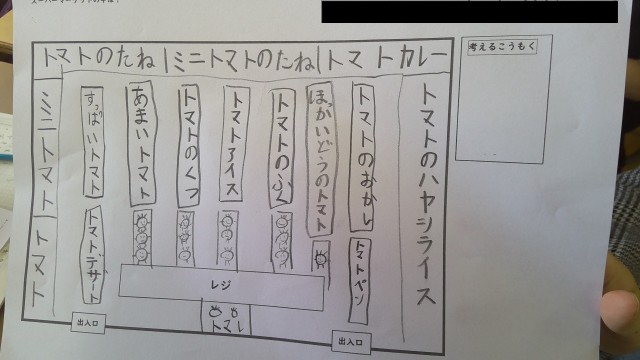 トマトのたね
ミニトマトのたね
トマトカレー
考えるこうもく
ミニトマト
トマト
すっぱいトマト
あまいトマト
トマトのくつ
トマトアイス
トマトのふく
ほっかいどうのトマト
トマトのおかし
トマトのハヤシライス
トマトデザート
トマトペン
レジ
出入口
出入口